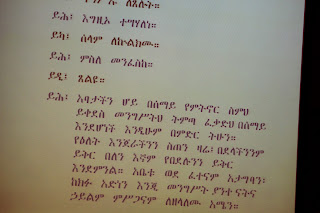 ለጸሎት።
ይሕ፤ እግዚኦ ተሣሃለነ።
ይካ፤ ሰላም ለኵልክሙ።
ይሕ፤ ምስለ መንፈስከ።
ይዲ፤ ጸልዩ።
ይሕ፤ አባታችን ሆይ በሰማይ የምትኖር ስምህ
ይቀደስ መንግሥትህ ትምጣ ፈቃድህ በሰማይ
እንደሆነች እንዲሁም በምድር ትሁን።
የዕለት እንጀራችንን ስጠን ዛሬ፤ በደላችንንም
ይቅር በለን እኛም የበደሉንን ይቅር
እንደምንል። አቤቱ ወደ ፈተናም አታግባን፤
ከክፉ አድነን እንጂ መንግሥት ያንተ ናትና
ኃይልም ምሥጋናም ለዘላለሙ አሜን።